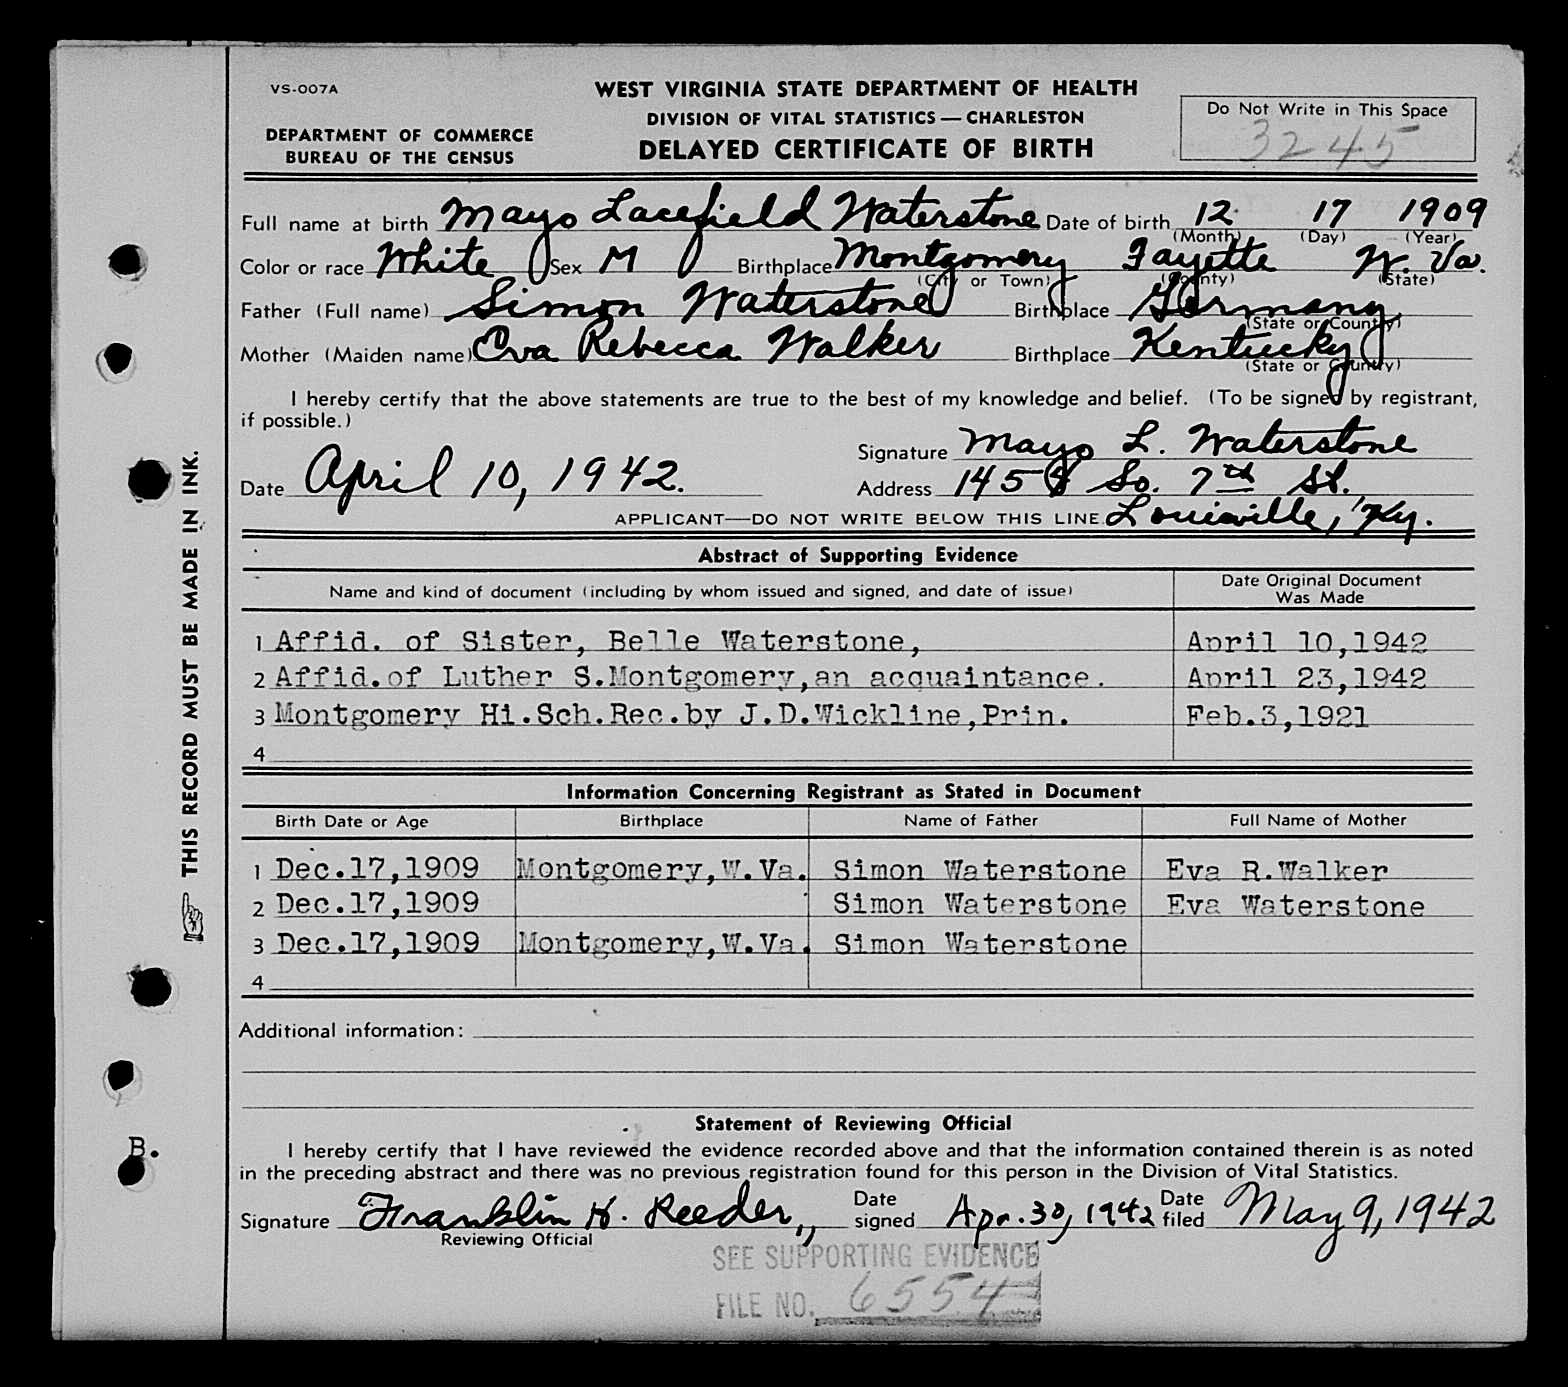 VS-007A
WEST VIRGINIA STATE DEPARTMENT OF HEALTH
DEPARTMENT OF COMMERCE
BUREAU OF THE CENSUS
DIVISION OF VITAL STATISTICS — CHARLESTON
DELAYED CERTIFICATE OF BIRTH
Do Not Write in This Space
3245
Full name at birth Mayo Lacefield Waterstone Date of birth 12 17 1909
(Month) (Day) (Year)
Color or race White Sex M Birthplace Montgomery Fayette W. Va.
(City or Town) (County) (State)
Father (Full name) Simon Waterstone Birthplace Germany
(State or Country)
Mother (Maiden name) Eva Rebecca Walker Birthplace Kentucky
(State or Country)
I hereby certify that the above statements are true to the best of my knowledge and belief. (To be signed by registrant,
if possible.)
Signature Mayo L. Waterstone
Date April 10, 1942. Address 1458 So. 7th St.
APPLICANT—DO NOT WRITE BELOW THIS LINE. Louisville, Ky.
Abstract of Supporting Evidence
Name and kind of document (including by whom issued and signed, and date of issue)
Date Original Document
Was Made
1 Affid. of Sister, Belle Waterstone, April 10,1942
2 Affid.of Luther S.Montgomery,an acquaintance. April 23,1942
3 Montgomery Hi.Sch.Rec.by J.D.Wickline,Prin. Feb.3,1921
4
Information Concerning Registrant as Stated in Document
Birth Date or Age Birthplace Name of Father Full Name of Mother
1 Dec.17,1909 Montgomery,W.Va. Simon Waterstone Eva R.Walker
2 Dec.17,1909 Simon Waterstone Eva Waterstone
3 Dec.17,1909 Montgomery,W.Va. Simon Waterstone
4
Additional information:
Statement of Reviewing Official
I hereby certify that I have reviewed the evidence recorded above and that the information contained therein is as noted
in the preceding abstract and there was no previous registration found for this person in the Division of Vital Statistics.
Signature Franklin H. Reeder,, Date signed Apr. 30, 1942 Date filed May 9, 1942
Reviewing Official
SEE SUPPORTING EVIDENCE
FILE NO. 6554
THIS RECORD MUST BE MADE IN INK.
B.